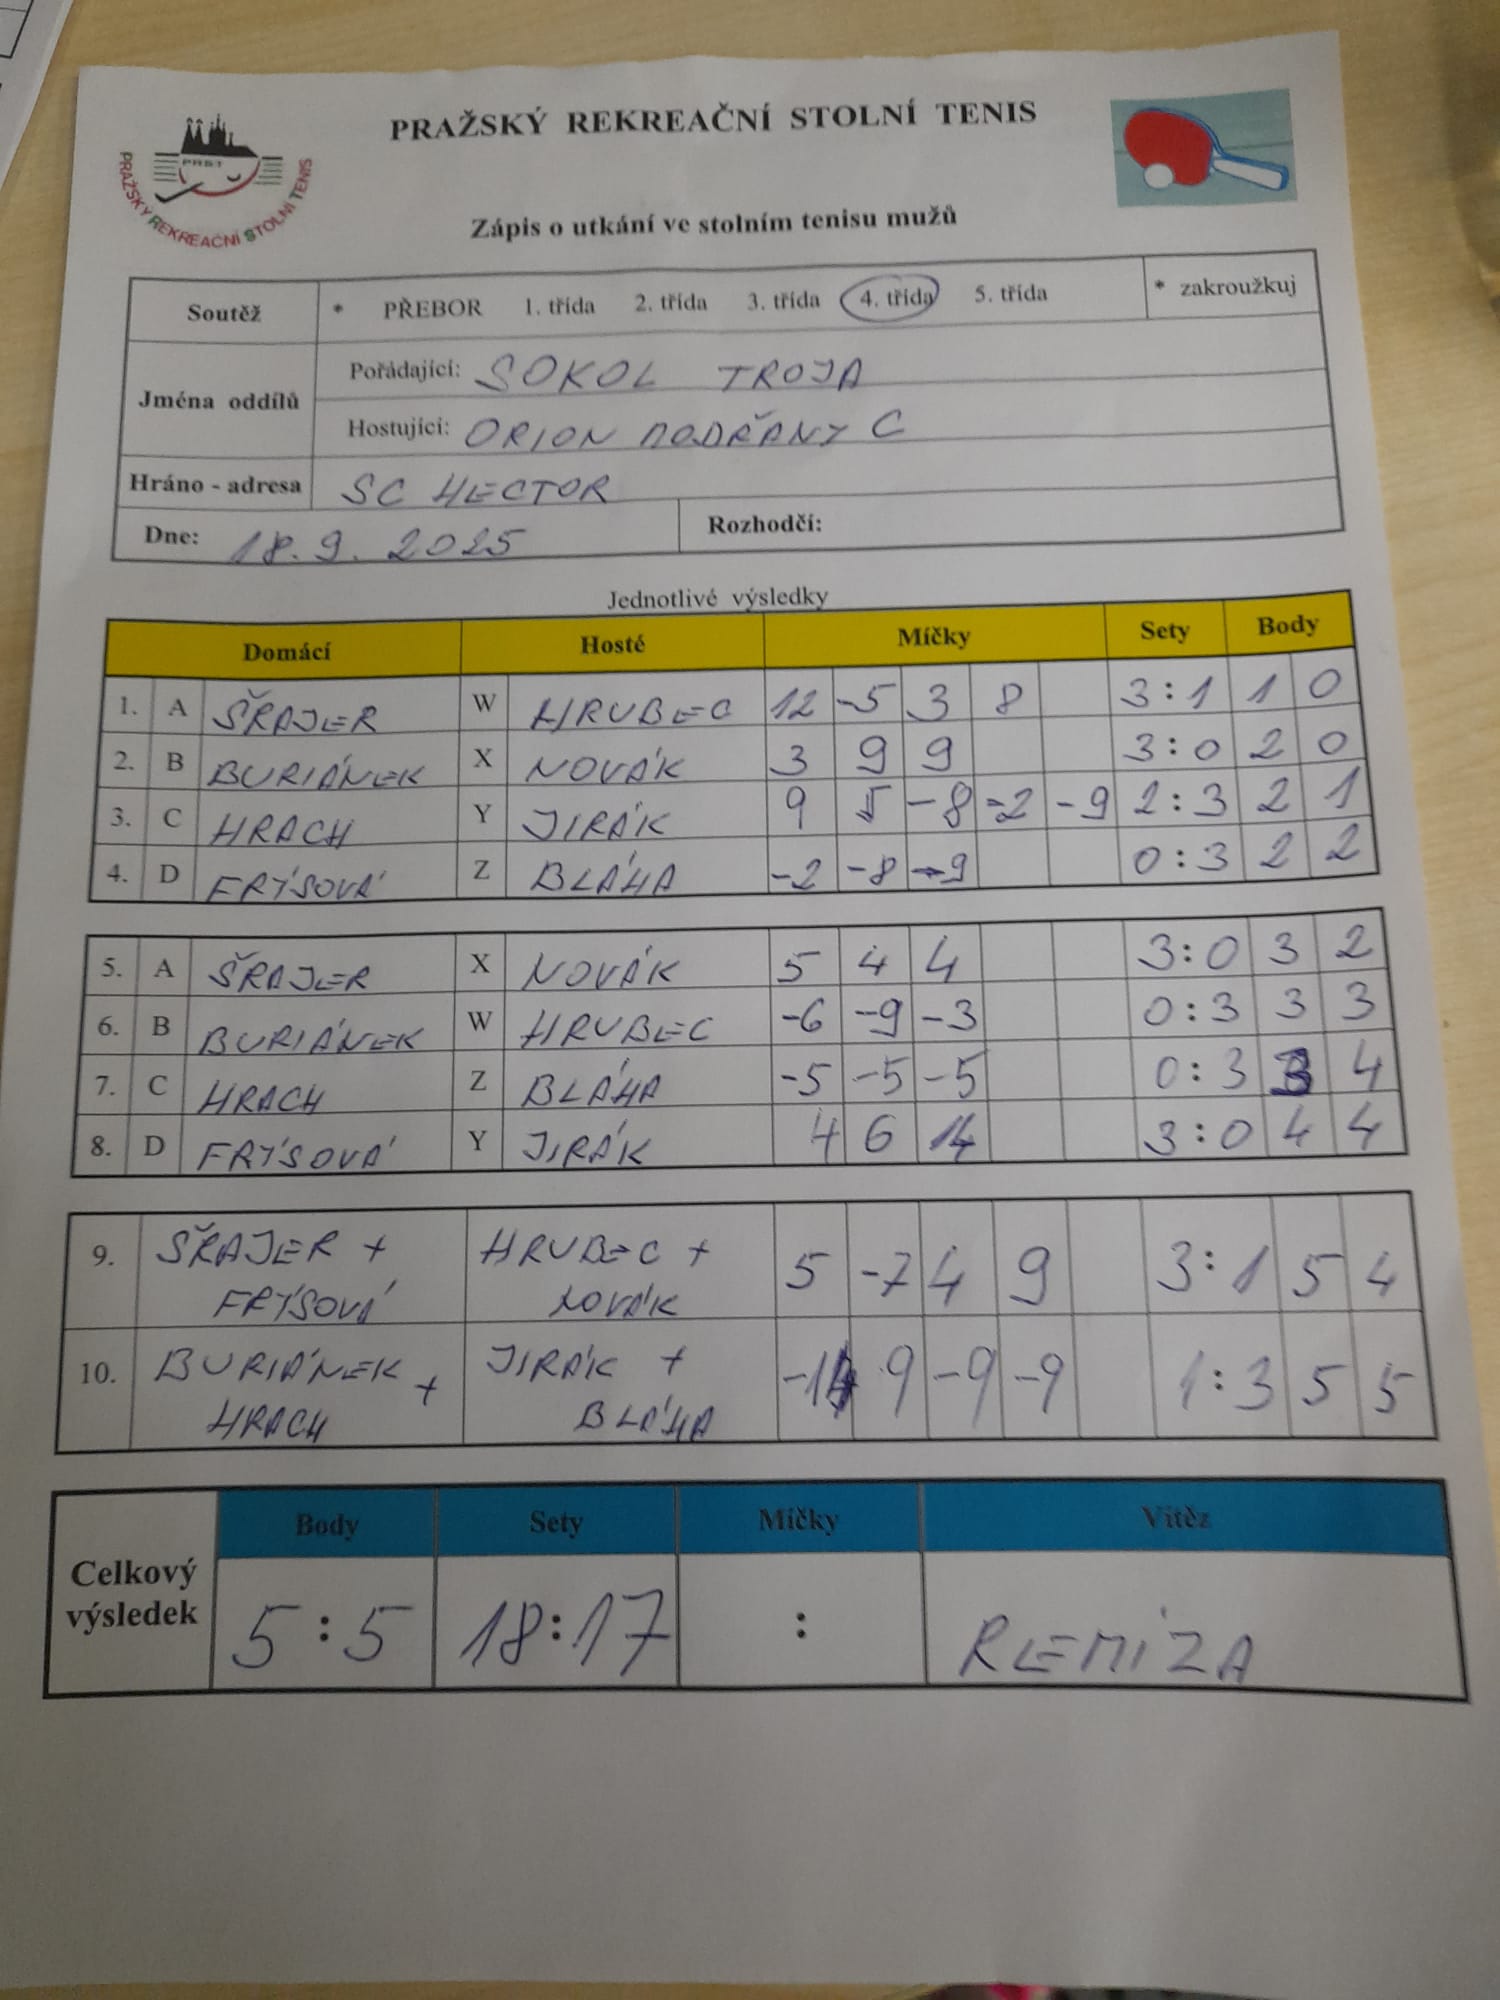 PRAŽSKÝ REKREAČNÍ STOLNÍ TENIS
PRST
PRAŽSKÝ REKREAČNÍ STOLNÍ TENIS
Zápis o utkání ve stolním tenisu mužů
Soutěž * PŘEBOR 1. třída 2. třída 3. třída 4. třída 5. třída * zakroužkuj
Jména oddílů
Pořádající: SOKOL TROJA
Hostující: ORION MODŘANY C
Hráno - adresa SC HECTOR
Dne: 18.9.2025 Rozhodčí:
Jednotlivé výsledky
Domácí Hosté Míčky Sety Body
1. A ŠRAJER W HRUBEC 12 -5 3 8 3:1 1 0
2. B BURIÁNEK X NOVÁK 3 9 9 3:0 2 0
3. C HRACH Y JIRÁK 9 5 -8 -2 -9 2:3 2 1
4. D FRÝSOVÁ Z BLÁHA -2 -8 -9 0:3 2 2
5. A ŠRAJER X NOVÁK 5 4 4 3:0 3 2
6. B BURIÁNEK W HRUBEC -6 -9 -3 0:3 3 3
7. C HRACH Z BLÁHA -5 -5 -5 0:3 3 4
8. D FRÝSOVÁ Y JIRÁK 4 6 14 3:0 4 4
9. ŠRAJER + HRUBEC + 5 -7 4 9 3:1 5 4
FRÝSOVÁ NOVÁK
10. BURIÁNEK + JIRÁK + -14 9 -9 -9 1:3 5 5
HRACH BLÁHA
Body Sety Míčky Vítěz
Celkový
výsledek 5:5 18:17 : REMÍZA